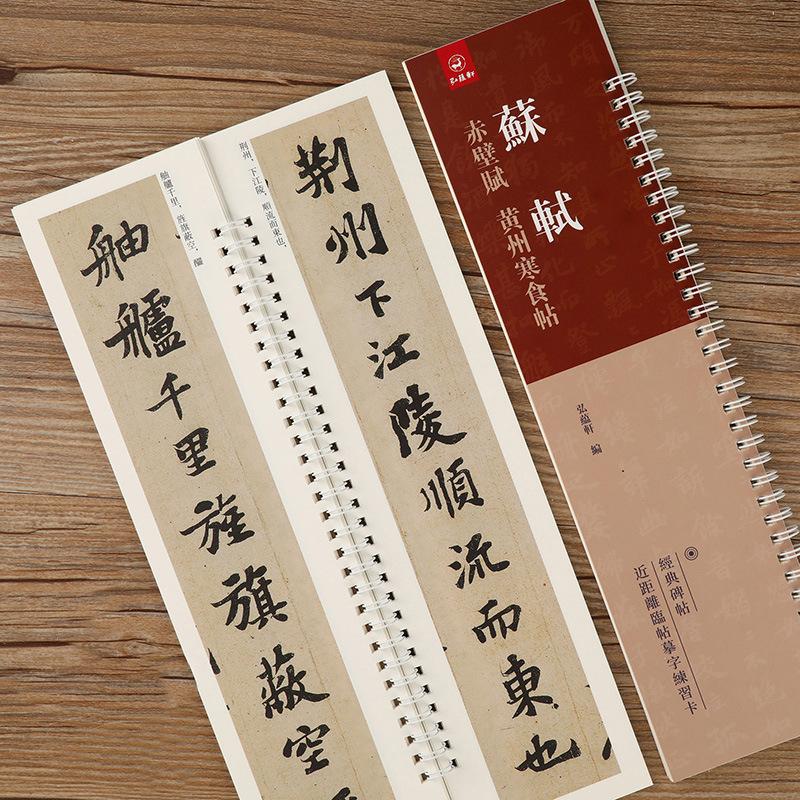 荆州下江陵順流而東也
舳艫千里旌旗蔽空
荆州，下江陵，順流而東也，
舳艫千里，旌旗蔽空，釃
弘蕴軒
蘇軾
赤壁賦 黄州寒食帖
弘蘊軒 編
經典碑帖
近距離臨帖摹字練習卡